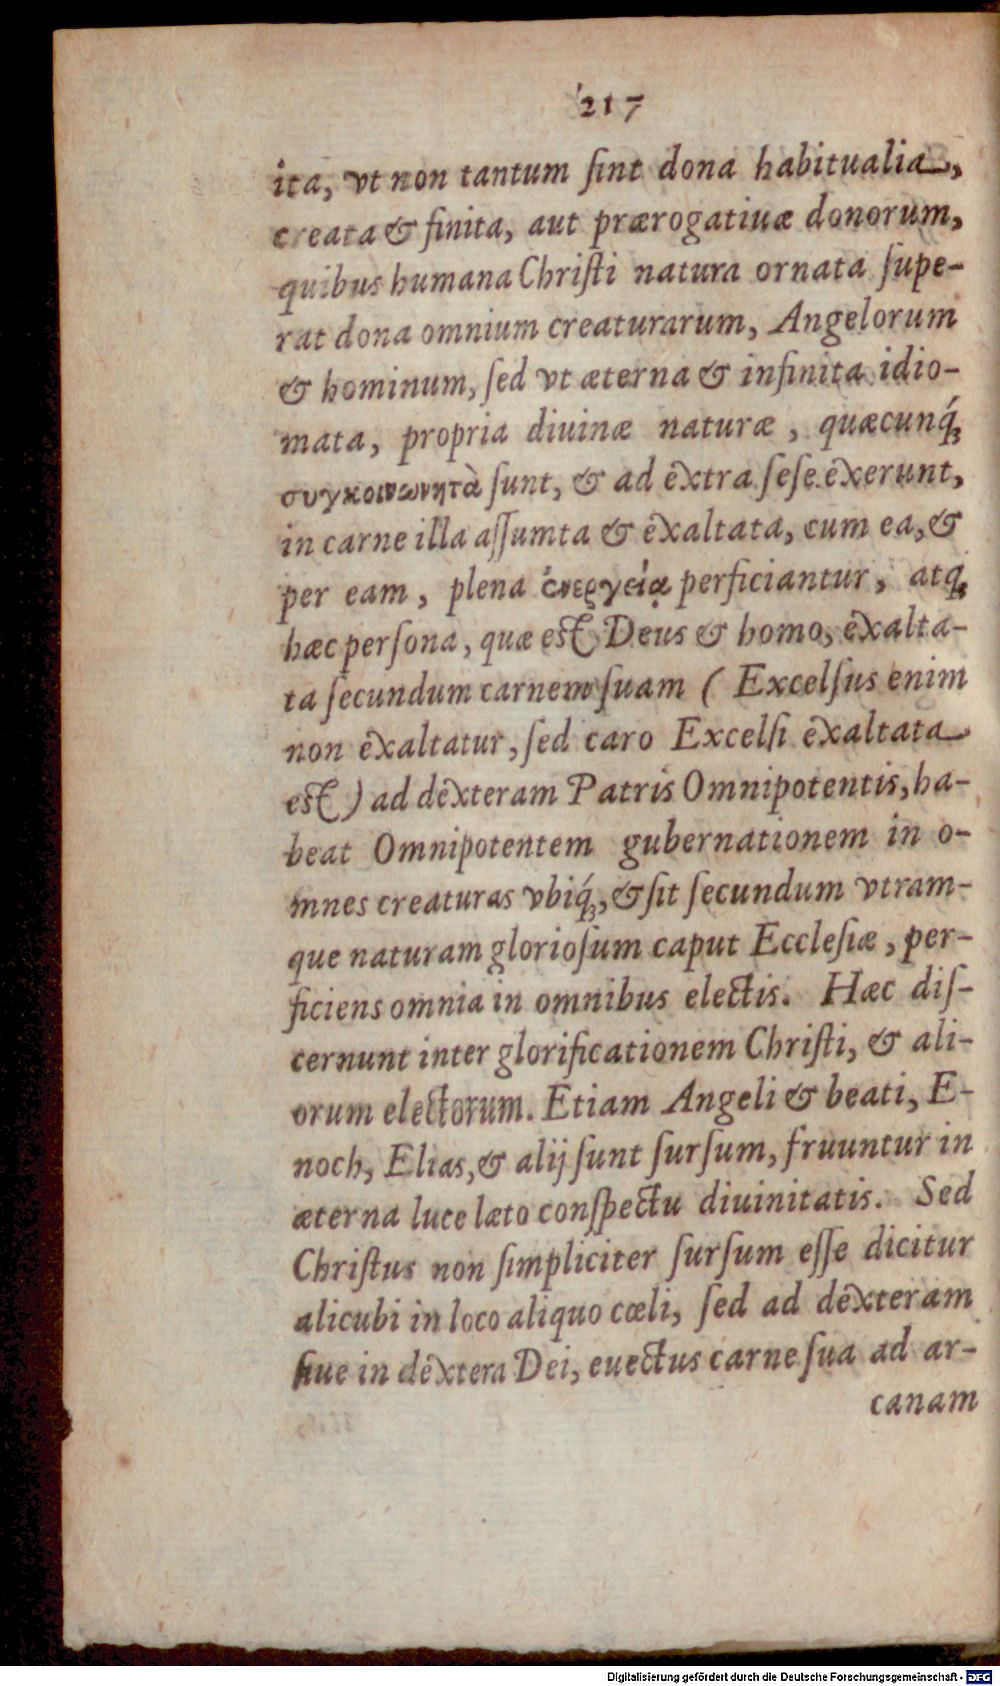 217
ita, vt non tantum ſint dona habitualia,
creata & finita, aut prærogatiuæ donorum,
quibus humana Chriſti natura ornata ſupe-
rat dona omnium creaturarum, Angelorum
& hominum, ſed vt æterna & infinita idio-
mata, propria diuinæ naturæ, quæcunq́;
συγκοινωνητὰ ſunt, & ad extra ſeſe exerunt,
in carne illa aſſumta & exaltata, cum ea, &
per eam, plena ἐνεργείᾳ perficiantur, atq;
hæc perſona, quæ eſt Deus & homo, exalta-
ta ſecundum carnem ſuam ( Excelſus enim
non exaltatur, ſed caro Excelſi exaltata
eſt ) ad dexteram Patris Omnipotentis, ha-
beat Omnipotentem gubernationem in o-
mnes creaturas vbiq́;, & ſit ſecundum vtram-
que naturam glorioſum caput Eccleſiæ, per-
ficiens omnia in omnibus electis. Hæc diſ-
cernunt inter glorificationem Chriſti, & ali-
orum electorum. Etiam Angeli & beati, E-
noch, Elias, & alij ſunt ſurſum, fruuntur in
æterna luce læto conſpectu diuinitatis. Sed
Chriſtus non ſimpliciter ſurſum eſſe dicitur
alicubi in loco aliquo cœli, ſed ad dexteram
ſiue in dextera Dei, euectus carne ſua ad ar-
canam
Digitalisierung gefördert durch die Deutsche Forschungsgemeinschaft - DFG